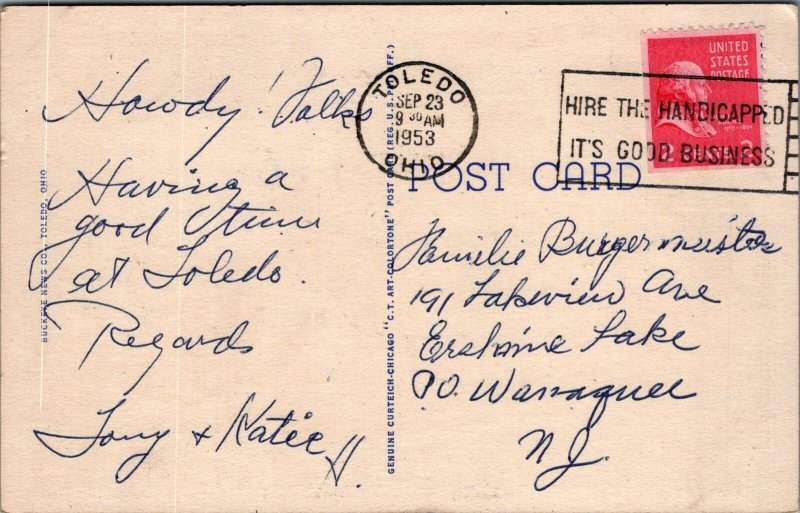 Howdy! Folks
Having a
good time
at Toledo.
Regards
Tony + Katie
BUCKEYE NEWS CO., TOLEDO, OHIO
GENUINE CURTEICH-CHICAGO "C.T. ART-COLORTONE" POST CARD (REG. U.S. PAT. OFF.)
TOLEDO
SEP 23
9 30 AM
1953
OHIO
HIRE THE HANDICAPPED
IT'S GOOD BUSINESS
UNITED
STATES
POSTAGE
POST CARD
Familie Burgermeister
191 Lakeview Ave
Erskine Lake
P.O. Wanaque
N.J.